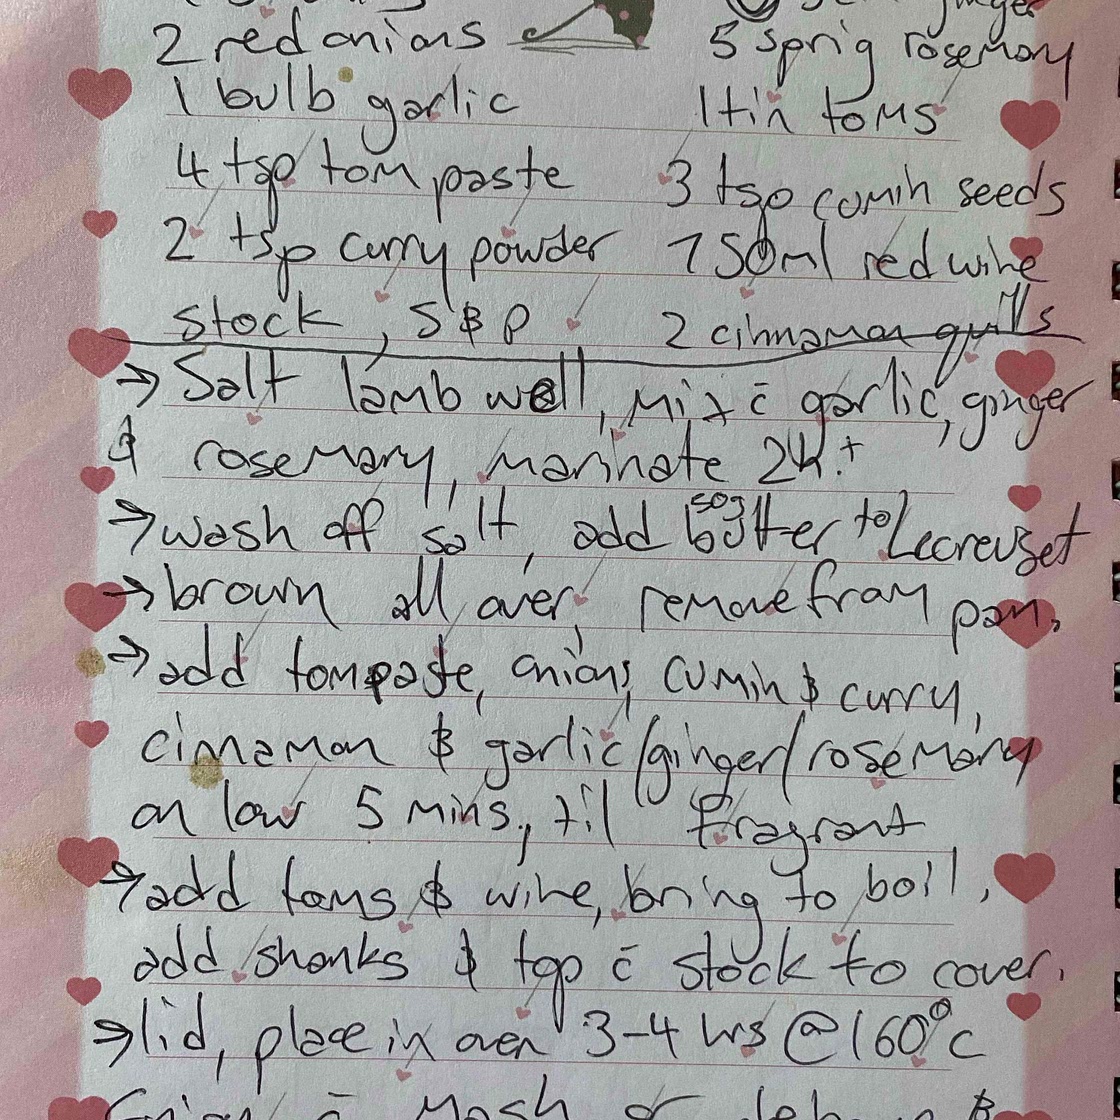 ginger
2 red onions 5 sprig rosemary
1 bulb garlic 1 tin toms
4 tsp tom paste 3 tsp cumin seeds
2 tsp curry powder 750ml red wine
stock, S & P 2 cinnamon quills
→ Salt lamb well, mix c̄ garlic, ginger
& rosemary, marinate 2h.+
→ wash off salt, add 50g butter to Lecreuset
→ brown all over, remove from pan.
→ add tom paste, onions, cumin & curry,
cinnamon & garlic/ginger/rosemary
on low 5 mins, til fragrant
→ add toms & wine, bring to boil,
add shanks & top c̄ stock to cover.
→ lid, place in oven 3-4 hrs @ 160°c
c̄ mash or &